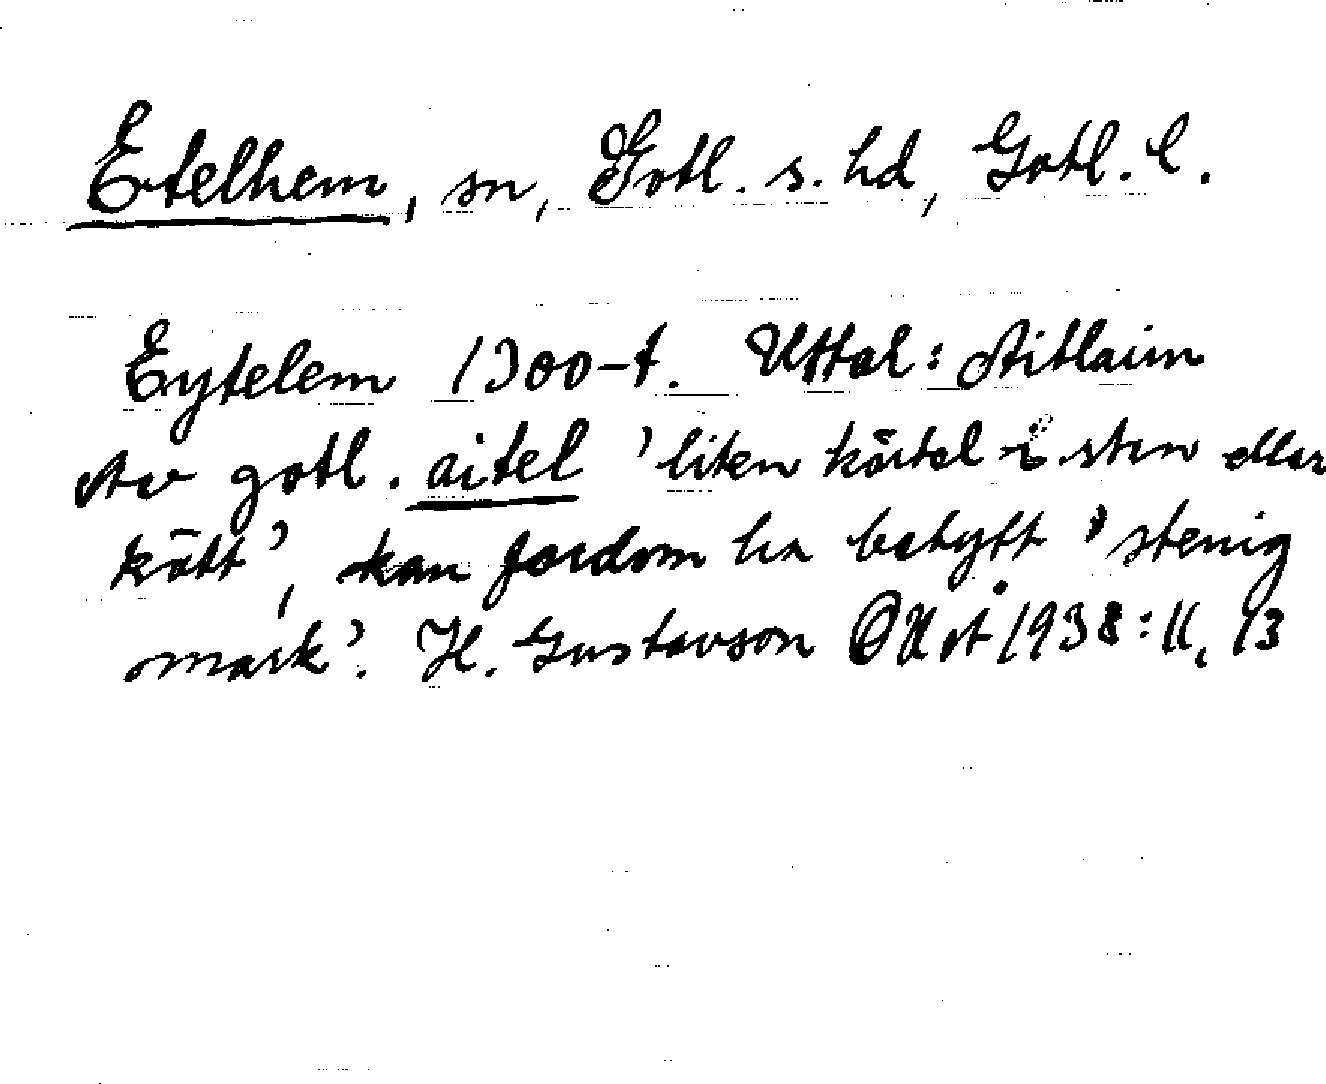 Etelhem, sn, Gotl. s. hd, Gotl. l.
Eytelem 1300-t. Uttal: Aitlaim
Av gotl. aitel 'liten körtel i sten eller
kött', kan fordom ha betytt 'stenig
mark'. H. Gustavson OUÅ 1938:11, 13